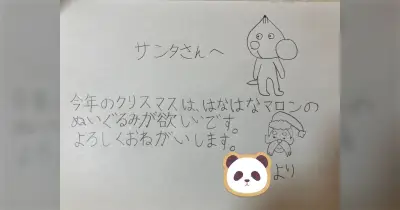 サンタさんへ
今年のクリスマスは、はなはなマロンの
ぬいぐるみが欲しいです。
よろしくおねがいします。
より